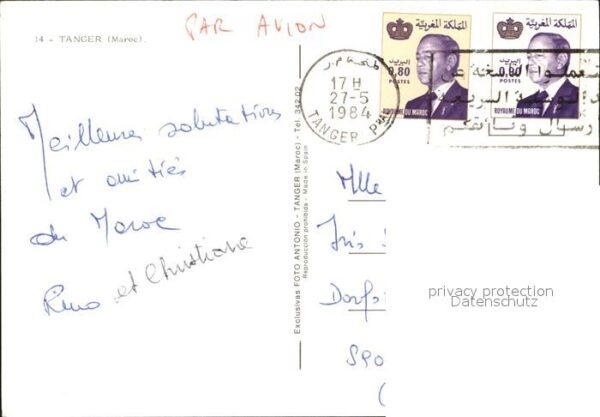 14 - TANGER (Maroc).
PAR AVION
المملكة المغربية
البريد
0,80
POSTES
ROYAUME DU MAROC
المملكة المغربية
البريد
0,80
POSTES
ROYAUME DU MAROC
طنجة
17 H
27-5
1984
TANGER
Meilleures salutations
et amitiés
du Maroc
et Christiane
Exclusivas FOTO ANTONIO - TANGER (Maroc) - Tel. 342.02
Reproducción prohibida - Made in Spain
Mlle
Iris
privacy protection
Datenschutz